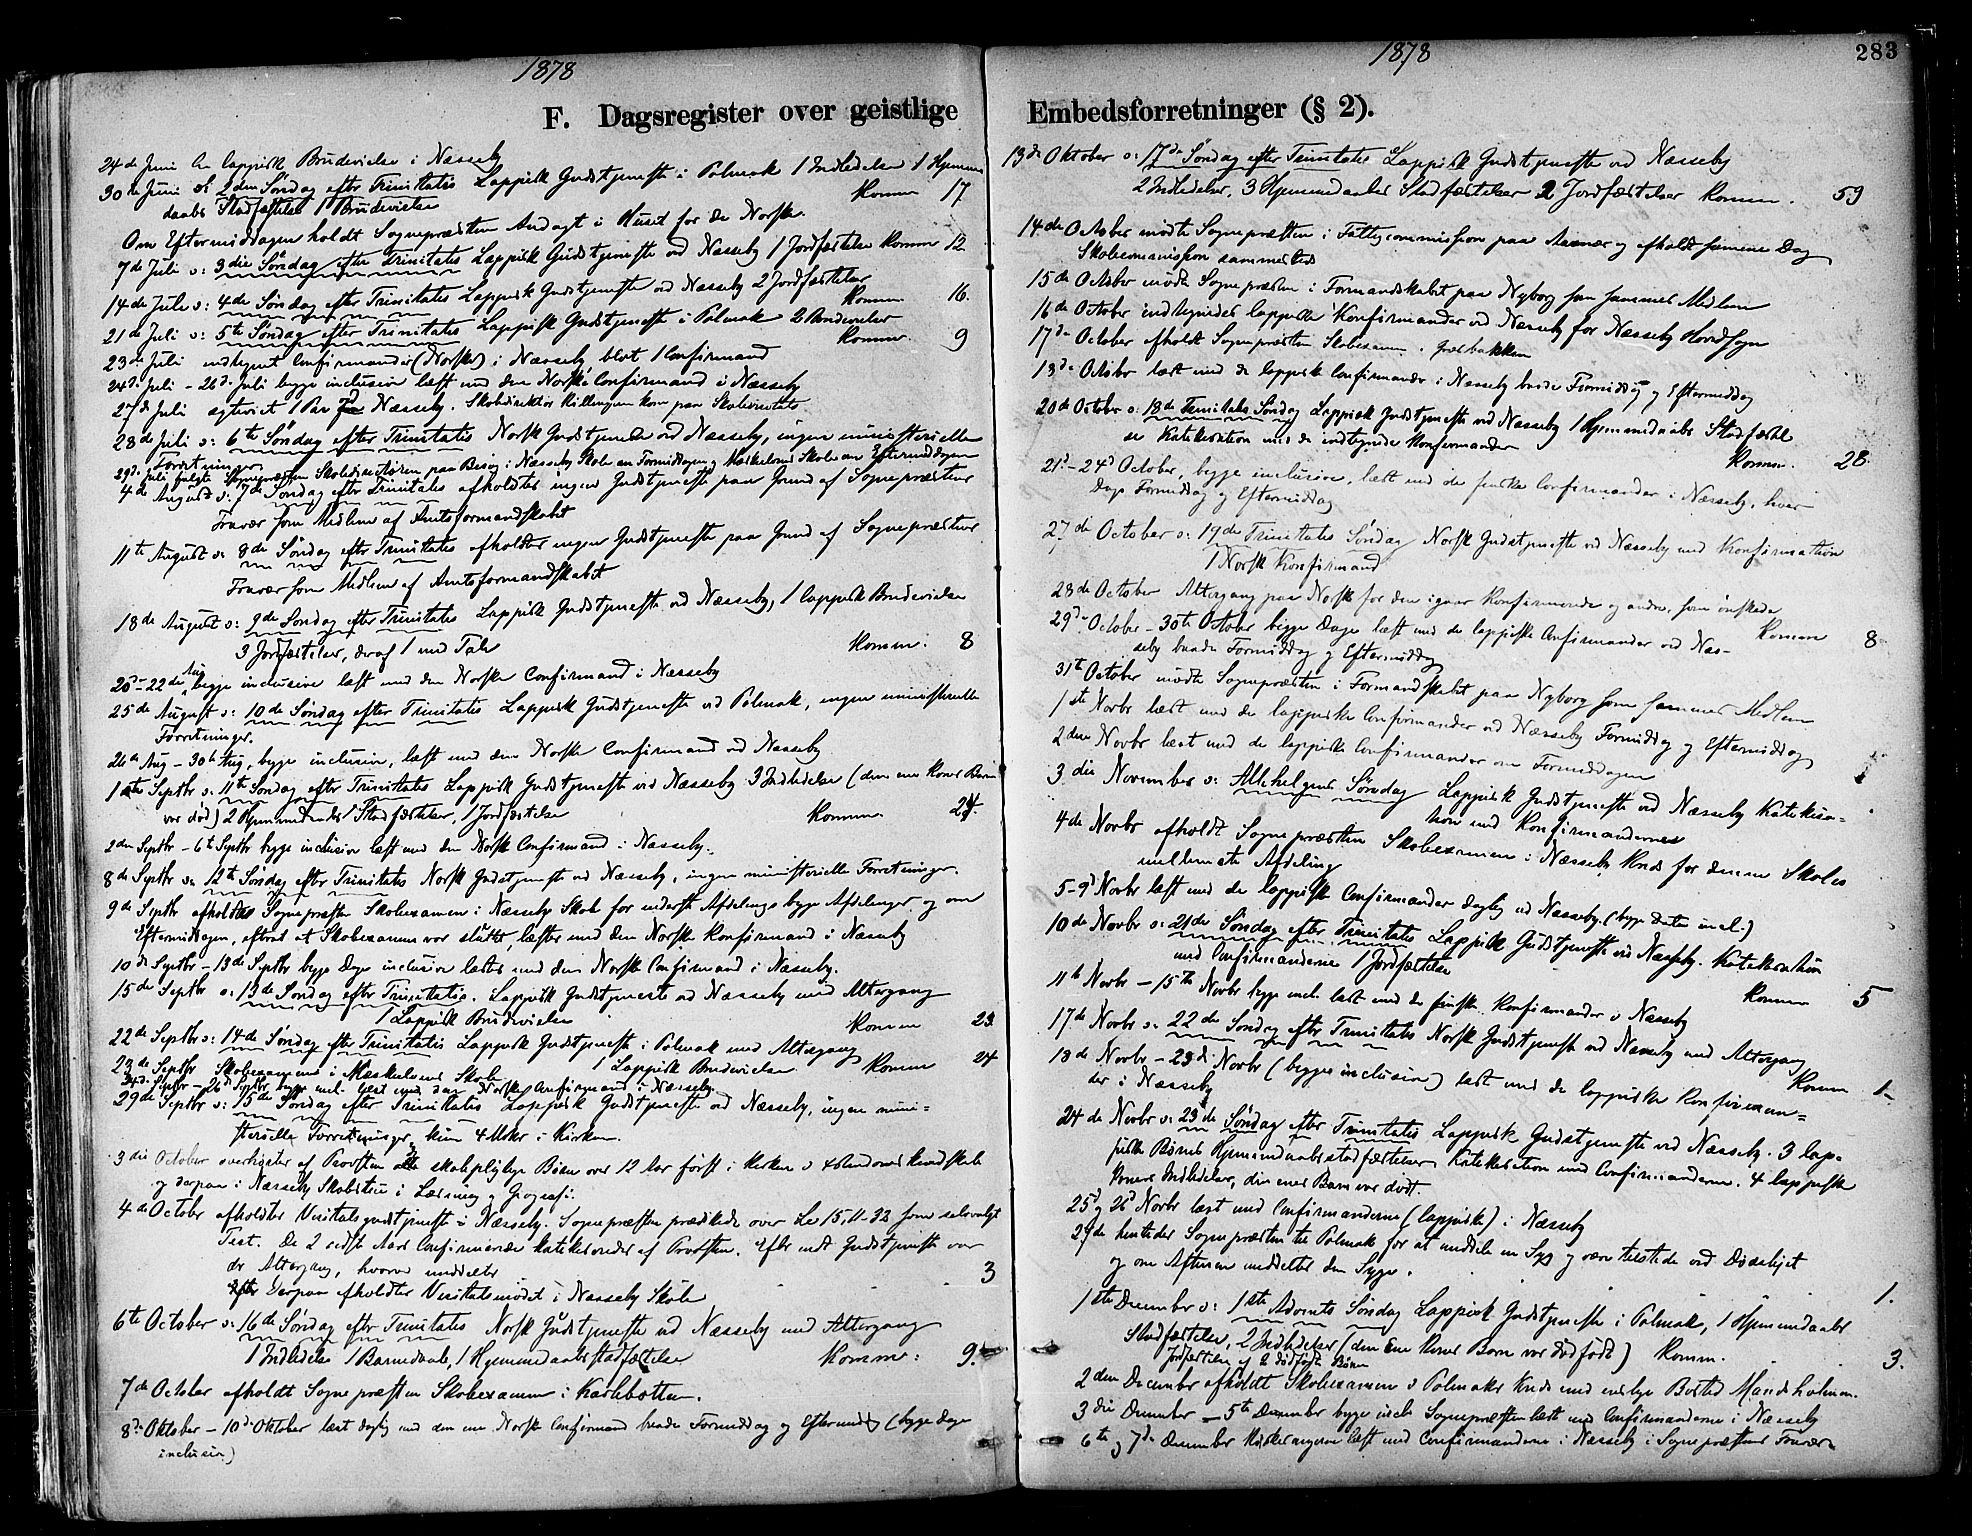 1878
F. Dagsregister over geistlige
24de Juni en lappisk Brudevielse i Næsseby
30te Juni 2den Søndag efter Trinitatis Lappisk Gudstjeneste i Polmak 1 Indledelse 1 Hjemme
daabs Stadfæstelse 1 Brudevielse Komm 17
Om Eftermiddagen holdt Sognepræsten Andagt i Huset for de Norske.
7de Juli ɔ: 3die Søndag efter Trinitatis Lappisk Gudstjeneste ved Næsseby 1 Jordfæstelse Komm 12
14de Juli ɔ: 4de Søndag efter Trinitatis Lappisk Gudstjeneste ved Næsseby 2 Jordfæstelser
Komm 16.
21de Juli ɔ: 5te Søndag efter Trinitatis Lappisk Gudstjeneste i Polmak 2 Brudevielser
Komm. 9
23de Juli indtegnet Confirmander (Norske) i Næsseby blot 1 Confirmand
24de Juli - 26de Juli begge inclusive læst med den Norske Confirmand i Næsseby
27de Juli ægteviet 1 Par Næsseby. Skoledirektør Killengreen kom paa Skolevisitats
28de Juli ɔ: 6te Søndag efter Trinitatis Norsk Gudstjeneste ved Næsseby, ingen ministerielle
Forretninger
29de Juli fulgte Sognepræsten Skoledirectøren paa Besøg i Næsseby Skole om Formiddagen og Mæskelvnes Skole om Eftermiddagen
4de August ɔ: 7de Søndag efter Trinitatis afholdtes ingen Gudstjeneste paa Grund af Sognepræstens
Fravær som Medlem af Amtsformandskabet
11te August ɔ: 8de Søndag efter Trinitatis afholdtes ingen Gudstjeneste paa Grund af Sognepræstens
Fravær som Medlem af Amtsformandskabet
18de August ɔ: 9de Søndag efter Trinitatis Lappisk Gudstjeneste ved Næsseby, 1 lappisk Brudevielse
3 Jordfæstelser, deraf 1 med Tale Komm: 8
20de - 22de Aug begge inclusive læst med den Norske Confirmand i Næsseby
25de August ɔ: 10de Søndag efter Trinitatis Lappisk Gudstjeneste ved Polmak, ingen ministerielle
Forretninger.
26de Aug - 30te Aug, begge inclusive, læst med den Norske Confirmand ved Næsseby
1ste Septbr ɔ: 11te Søndag efter Trinitatis Lappisk Gudstjeneste ved Næsseby 3 Indledelser (den ene Kones Barn
var død) 2 Hjemmedaabs Stadfæstelser, 1 Jordfæstelse Komm 24.
2den Septbr - 6te Septbr begge inclusive læst med den Norske Confirmand i Næsseby.
8de Septbr ɔ: 12te Søndag efter Trinitatis Norsk Gudstjeneste ved Næsseby, ingen ministerielle Forretninger.
9de Septbr afholdtes Sognepræsten Skoleexamen i Næsseby Skole for nederste Afdelings begge Afdelinger og om
Eftermiddagen, efterat Skoleexamen var sluttet, læstes med den Norske Konfirmand i Næsseby
10de Septbr - 13de Septbr begge Dage inclusive læstes med den Norske Confirmand i Næsseby.
15de Septbr ɔ: 13de Søndag efter Trinitatis. Lappisk Gudstjeneste ved Næsseby med Altergang
1 Lappisk Brudevielse Komm 23.
22de Septbr ɔ: 14de Søndag efter Trinitatis Lappisk Gudstjeneste i Polmak med Altergang
1 Lappisk Brudevielse Komm 24
23de Septbr Skoleexamen i Mæskelvnes Skole
24de Septbr - 26de Septbr begge incl. læst med den Norske Confirmand i Næsseby.
29de Septbr ɔ: 15de Søndag efter Trinitatis Lappisk Gudstjeneste ved Næsseby, ingen mini-
sterielle Forretninger, kun 4 Msker i Kirken.
3die October overhørtes af Provsten skolepligtige Børn over 12 Aar først i Kirken i
og derpaa i Næsseby Skolestue i Læsning og Geografi.
4de October afholdtes Visitatsgudstjeneste i Næsseby. Sognepræsten prædikede over Luc 15, 11-32 som selvvalgt
Text. De 2 sidste Aars Confirmerede katekiseredes af Provsten. Efter endt Gudstjeneste var
der Altergang, hvorved meddeltes 3
Derpaa afholdtes Visitatsmødet i Næsseby Skole
6te October ɔ: 16de Søndag efter Trinitatis Norsk Gudstjeneste ved Næsseby med Altergang
1 Indledelse 1 Barnedaab, 1 Hjemmedaabsstadfæstelse Komm: 9.
7de October afholdt Sognepræsten Skoleexamen i Karlebotten.
8de Oktober - 10de Oktober læst daglig med den ene Norske Confirmand baade Formiddag og Eftermiddag (begge Dage
inclusive)
1878
283
Embedsforretninger (§ 2).
13de Oktober ɔ: 17de Søndag efter Trinitatis Lappisk Gudstjeneste ved Næsseby
2 Indledelser, 3 Hjemmedaabs Stadfæstelser 2 Jordfæstelser Komm. 59
14de October mødte Sognepræsten i Fattigcommission paa Næsset og afholdt samme Dag
Skolecommission sammesteds
15de October mødte Sognepræsten i Formandskabet paa Nyborg som sammes Medlem
16de October indtegnedes lappiske Konfirmander ved Næsseby for Næsseby Hovedsogn
17de October afholdt Sognepræsten Skoleexamen i Græsbakken
18de October læst med de lappiske Confirmander i Næsseby baade Formiddag og Eftermiddag
20de October ɔ: 18de Trinitatis Søndag Lappisk Gudstjeneste ved Næsseby 1 Hjemmedaabs Stadfæstel
se Katekisation med de indtegnede Konfirmander Komm. 28.
21de - 24de October, begge inclusive, læst med de finske Confirmander i Næsseby, hver
Dag Formiddag og Eftermiddag
27de October ɔ: 19de Trinitatis Søndag Norsk Gudstjeneste ved Næsseby med Konfirmation
1 Norsk Konfirmand
28de October Altergang paa Norsk for den igaar Konfirmerede og andre, som ønskede
Komm 8
29de October - 30te October begge Dage læst med de lappiske Confirmander ved Næs-
seby baade Formiddag og Eftermiddag
31te October mødte Sognepræsten i Formandskabet paa Nyborg som sammes Medlem
1ste Novbr læst med de lappiske Confirmander ved Næsseby Formiddag og Eftermiddag
2den Novbr læst med de lappiske Confirmander om Formiddagen
3die November ɔ: Allehelgens Søndag Lappisk Gudstjeneste ved Næsseby Katekisa-
tion med Konfirmanderne
4de Novbr afholdt Sognepræsten Skoleexamen i Næsseby Kreds for denne Skoles
mellemste Afdeling
5-9de Novbr læst med de lappiske Confirmander daglig ved Næsseby. (begge Dater incl.)
10de Novbr ɔ: 21de Søndag efter Trinitatis Lappisk Gudstjeneste ved Næsseby. Katekisation
med Confirmanderne 1 Jordfæstelse Komm 5
11te Novbr - 15te Novbr begge incl. læst med de finske Konfirmander i Næsseby
17de Novbr ɔ: 22de Søndag efter Trinitatis Norsk Gudstjeneste ved Næsseby med Altergang
Komm 1
18de Novbr - 23de Novbr (begge inclusive) læst med de lappiske Konfirman-
der i Næsseby
24de Novbr ɔ: 23de Søndag efter Trinitatis Lappisk Gudstjeneste ved Næsseby. 3 lap-
piske Børns Hjemmedaabsstadfæstelser Katekisation med Confirmanderne. 4 lappiske
Koners Indledelse, den enes Barn var dødt.
25de og 26de Novbr læst med Confirmanderne (lappiske) i Næsseby
29de hentedes Sognepræsten til Polmak for at meddele en Syg og være tilstede ved Dødslejet
og om Aftenen meddeltes den Syge. 1.
1ste December ɔ: 1ste Advents Søndag Lappisk Gudstjeneste i Polmak, 1 Hjemmedaabs
Stadfæstelse, 2 Indledelser (den Ene Kones Barn var dødfødt) Komm. 3.
Jordfæstelse af 2 dødfødte Børn
2den December afholdt Skoleexamen i Polmaks Kreds med
3die December - 5te December begge incl. Sognepræsten læst med Confirmanderne i Næsseby
6te og 7de December Kirkesangeren læst med Confirmanderne i Næsseby i Sognepræstens Fravær